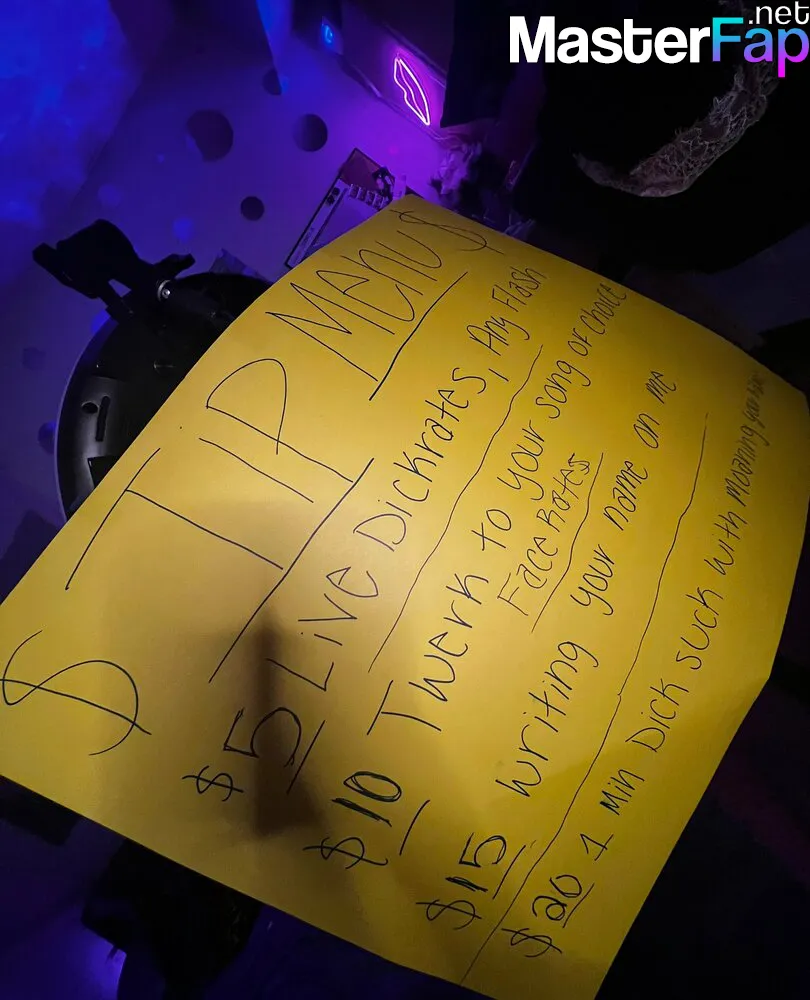 MasterFap
.net
$ TIP MENU $
$5 Live Dickrates, Any Flash
$10 Twerk to your song of choice
Face Rates
$15 writing your name on me
$20 1 Min Dick suck with Moaning your